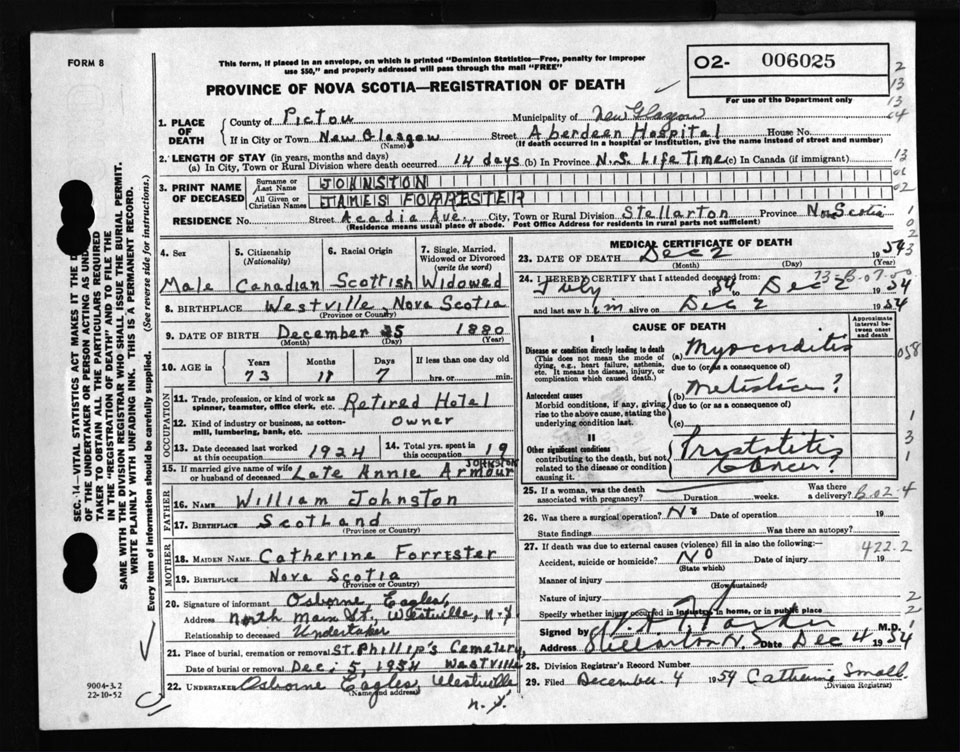 FORM 8
This form, if placed in an envelope, on which is printed "Dominion Statistics—Free, penalty for improper
use $50," and properly addressed will pass through the mail "FREE"
O2- 006025
For use of the Department only
PROVINCE OF NOVA SCOTIA—REGISTRATION OF DEATH
1. PLACE OF DEATH
County of Pictou Municipality of New Glasgow
If in City or Town New Glasgow Street Aberdeen Hospital House No.
(Name) (If death occurred in a hospital or institution, give the name instead of street and number)
2. LENGTH OF STAY (in years, months and days)
(a) In City, Town or Rural Division where death occurred 14 days (b) In Province N.S. Life Time (c) In Canada (if immigrant)
3. PRINT NAME OF DECEASED
Surname or Last Name JOHNSTON
All Given or Christian Names JAMES FORRESTER
RESIDENCE No. Street Acadia Ave., City, Town or Rural Division Stellarton Province Nova Scotia
(Residence means usual place of abode. Post Office Address for residents in rural parts not sufficient)
4. Sex
Male
5. Citizenship (Nationality)
Canadian
6. Racial Origin
Scottish
7. Single, Married, Widowed or Divorced (write the word)
Widowed
8. BIRTHPLACE Westville, Nova Scotia
(Province or Country)
9. DATE OF BIRTH December 25 1880
(Month) (Day) (Year)
10. AGE in Years Months Days If less than one day old
73 11 7 hrs. or min.
OCCUPATION
11. Trade, profession, or kind of work as spinner, teamster, office clerk, etc. Retired Hotel
12. Kind of industry or business, as cotton-mill, lumbering, bank, etc. Owner
13. Date deceased last worked at this occupation 1924
14. Total yrs. spent in this occupation 19
15. If married give name of wife or husband of deceased Late Annie Armour JOHNSTON
FATHER
16. NAME William Johnston
17. BIRTHPLACE Scotland
(Province or Country)
MOTHER
18. MAIDEN NAME Catherine Forrester
19. BIRTHPLACE Nova Scotia
(Province or Country)
20. Signature of informant Osborne Eagles,
Address North Main St., Westville, N.S.
Relationship to deceased Undertaker
21. Place of burial, cremation or removal St. Phillip's Cemetery,
Date of burial or removal Dec. 5, 1954 Westville
22. UNDERTAKER Osborne Eagles, Westville
(Name and address) N.S.
MEDICAL CERTIFICATE OF DEATH
23. DATE OF DEATH Dec 2 1954
(Month) (Day) (Year)
24. I HEREBY CERTIFY that I attended deceased from:
July 54 to Dec 2 1954
and last saw him alive on Dec 2 1954
CAUSE OF DEATH
Approximate interval between onset and death
I
Disease or condition directly leading to death (a) Myocorditis
(This does not mean the mode of dying, e.g., heart failure, asthenia, etc. It means the disease, injury, or complication which caused death.)
due to (or as a consequence of)
Antecedent causes
Morbid conditions, if any, giving rise to the above cause, stating the underlying condition last.
(b)
due to (or as a consequence of)
(c)
II
Other significant conditions contributing to the death, but not related to the disease or condition causing it.
Prostatitis
Cancer?
25. If a woman, was the death associated with pregnancy? Duration weeks. Was there a delivery?
26. Was there a surgical operation? No Date of operation 19
State findings Was there an autopsy?
27. If death was due to external causes (violence) fill in also the following:—
Accident, suicide or homicide? No Date of injury 19
(State which)
Manner of injury
(How sustained)
Nature of injury
Specify whether injury occurred in industry, in home, or in public place
Signed by M.D.
Address Stellarton N.S. Date Dec 4 1954
28. Division Registrar's Record Number
29. Filed December 4 1954 Catherine Small
(Division Registrar)
422.2
SAME WITH THE DIVISION REGISTRAR WHO SHALL ISSUE THE BURIAL PERMIT.
WRITE PLAINLY WITH UNFADING INK. THIS IS A PERMANENT RECORD.
Every item of information should be carefully supplied. (See reverse side for instructions.)
SEC. 14—VITAL STATISTICS ACT MAKES IT THE
OF THE UNDERTAKER OR PERSON ACTING AS
TAKER TO OBTAIN ALL THE PARTICULARS REQUIRED
IN THE "REGISTRATION OF DEATH" AND TO FILE THE
9004-3.2
22-10-52